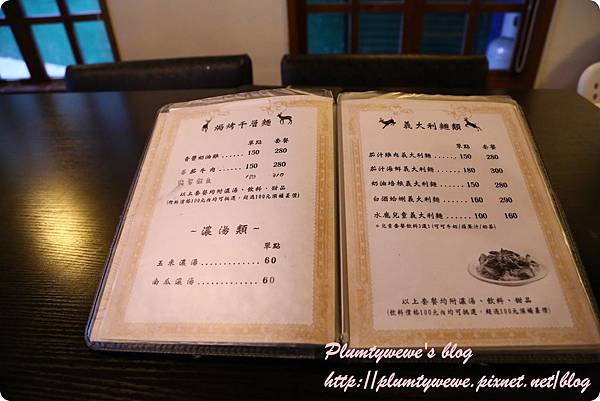 焗烤千層麵
單點 套餐
青醬奶油雞...... 150 280
蕃茄牛肉...... 150 280
以上套餐均附濃湯、飲料、甜品
(飲料價格100元內均可挑選，超過100元須補差價)
~ 濃湯類 ~
單點
玉米濃湯............ 60
南瓜濃湯............ 60
義大利麵類
單點 套餐
茄汁雞肉義大利麵...... 150 280
茄汁海鮮義大利麵...... 180 300
奶油培根義大利麵...... 150 280
白酒蛤蜊義大利麵...... 160 290
兒童義大利麵...... 100 160
以上套餐均附濃湯、飲料、甜品
(飲料價格100元內均可挑選，超過100元須補差價)
Plumtywewe's blog
http://plumtywewe.pixnet.net/blog